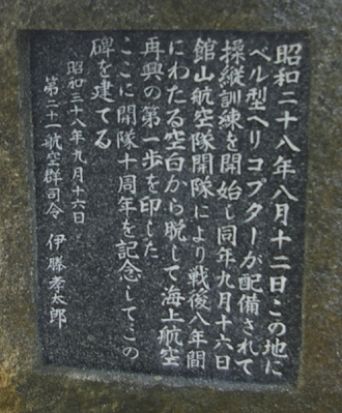 昭和二十八年八月十二日この地に
ベル型ヘリコプターが配備されて
操縦訓練を開始し同年九月十六日
館山航空隊開隊により戦後八年間
にわたる空白から脱して海上航空
再興の第一歩を印した
ここに開隊十周年を記念してこの
碑を建てる
昭和三十八年九月十六日
第二十一航空群司令 伊藤孝太郎